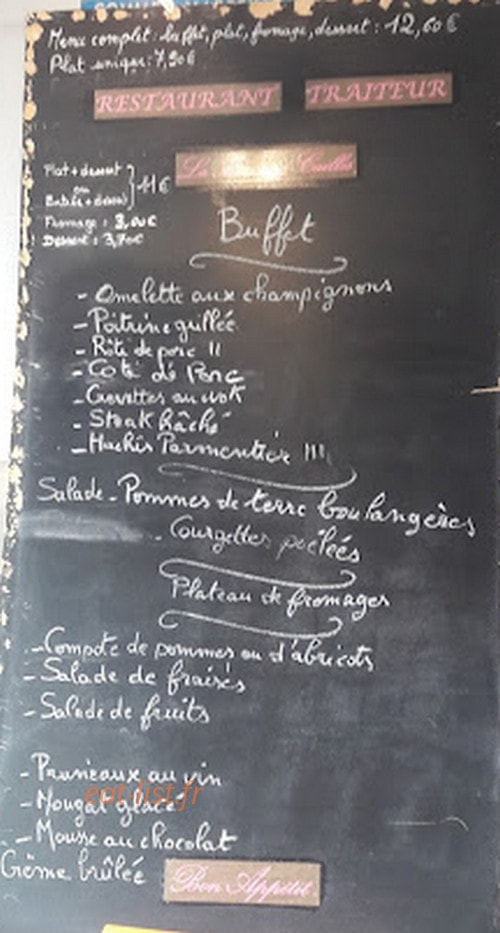 Menu complet: buffet, plat, fromage, dessert: 12,60€
Plat unique: 7,90€
RESTAURANT TRAITEUR
La Caille
Plat + dessert
ou
Entrée + dessert } 11€
Fromage : 3,00€
Dessert : 3,70€
Buffet
- Omelette aux champignons
- Poitrine grillée
- Rôti de porc II
- Côte de Porc
- Crevettes au wok
- Steak hâché
- Hachis Parmentier III
Salade - Pommes de terre boulangères
- Courgettes poêlées
Plateau de fromages
- Compote de pommes ou d'abricots
- Salade de fraises
- Salade de fruits
- Pruneaux au vin
- Nougat glacé
eat-list.fr
- Mousse au chocolat
Crème brûlée
Bon Appétit